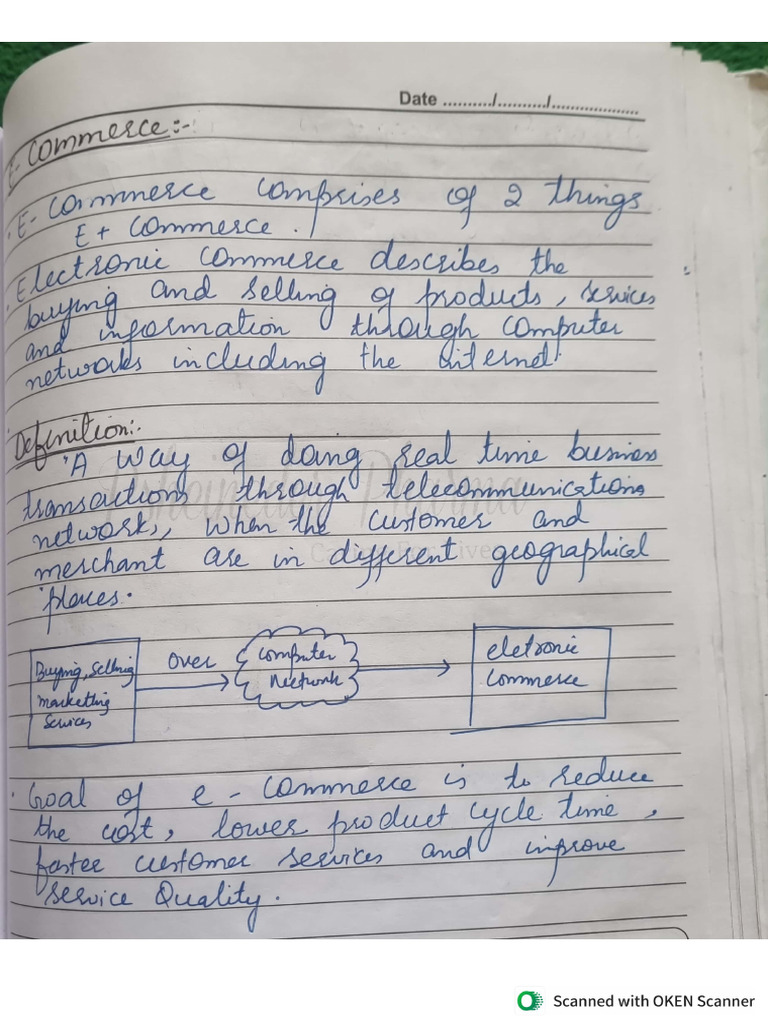 Date ........../........../...................
E-Commerce:-
· E-Commerce comprises of 2 things
E + Commerce.
· Electronic commerce describes the
buying and selling of products, services
and information through computer
networks including the internet.
Definition:-
"A way of doing real time business
transactions through telecommunications
network, when the customer and
merchant are in different geographical
places.
Buying, Selling
marketing
services
Over
Computer
Network
eletronic
commerce
· Goal of e-commerce is to reduce
the cost, lower product cycle time,
faster customer services and improve
service Quality.
Scanned with OKEN Scanner